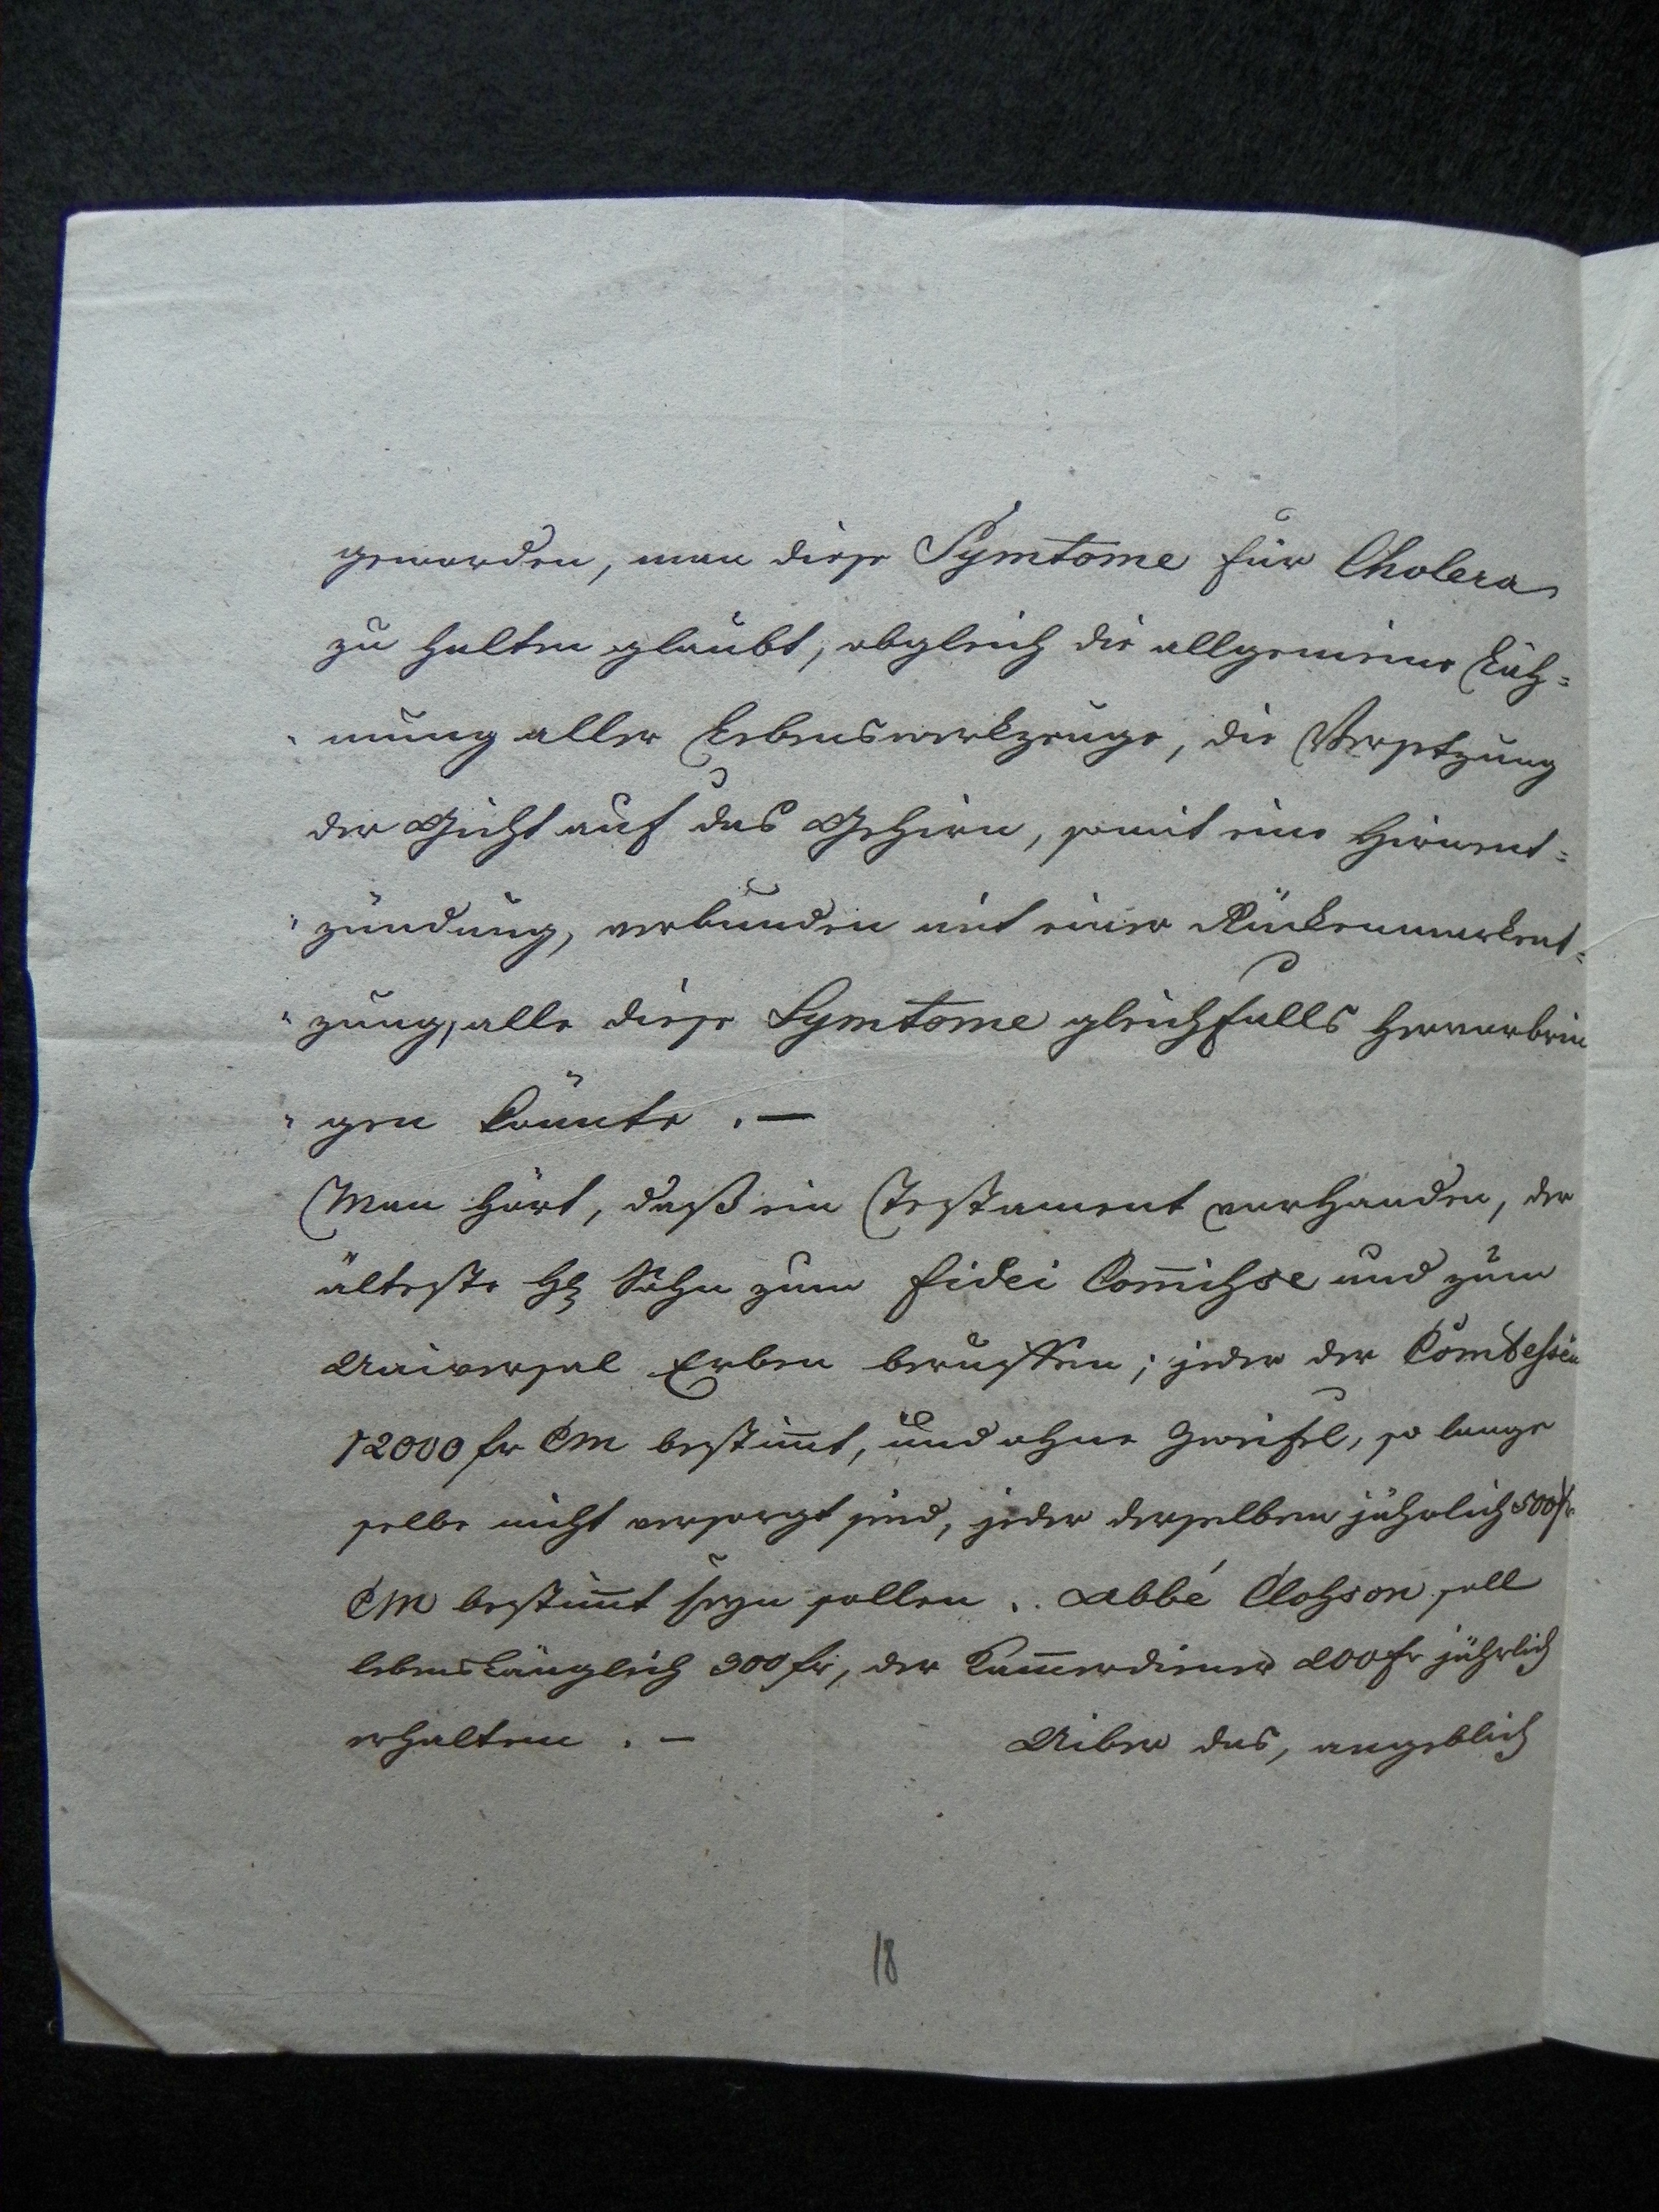 geworden, man diese Symtome für Cholera
zu halten glaubt, obgleich die allgemeine Läh=
mung aller Lebenswerkzeuge, die Versetzung
der Gicht auf das Gehirn, somit eine Hirnent=
zündung, verbunden mit einer Rückenmarkent=
zung, alle diese Symtome gleichfalls hervorbrin
gen könnte. —
Man hört, daß ein Testament vorhanden, der
älteste H Sohn zum fidei Com̅ihse und zum
Universal Erben beruffen; jeder der Comtehsen
12000 fr CM bestim̅t, und ohne Zweifel, so lange
selbe nicht versorgt sind, jeder derselben jährlich 500 fr
CM bestim̅t seyn sollen. Abbé Clohson soll
lebenslänglich 300 fr, der Kam̅erdiener 200 fr jährlich
erhalten. — Uiber das, angeblich
18